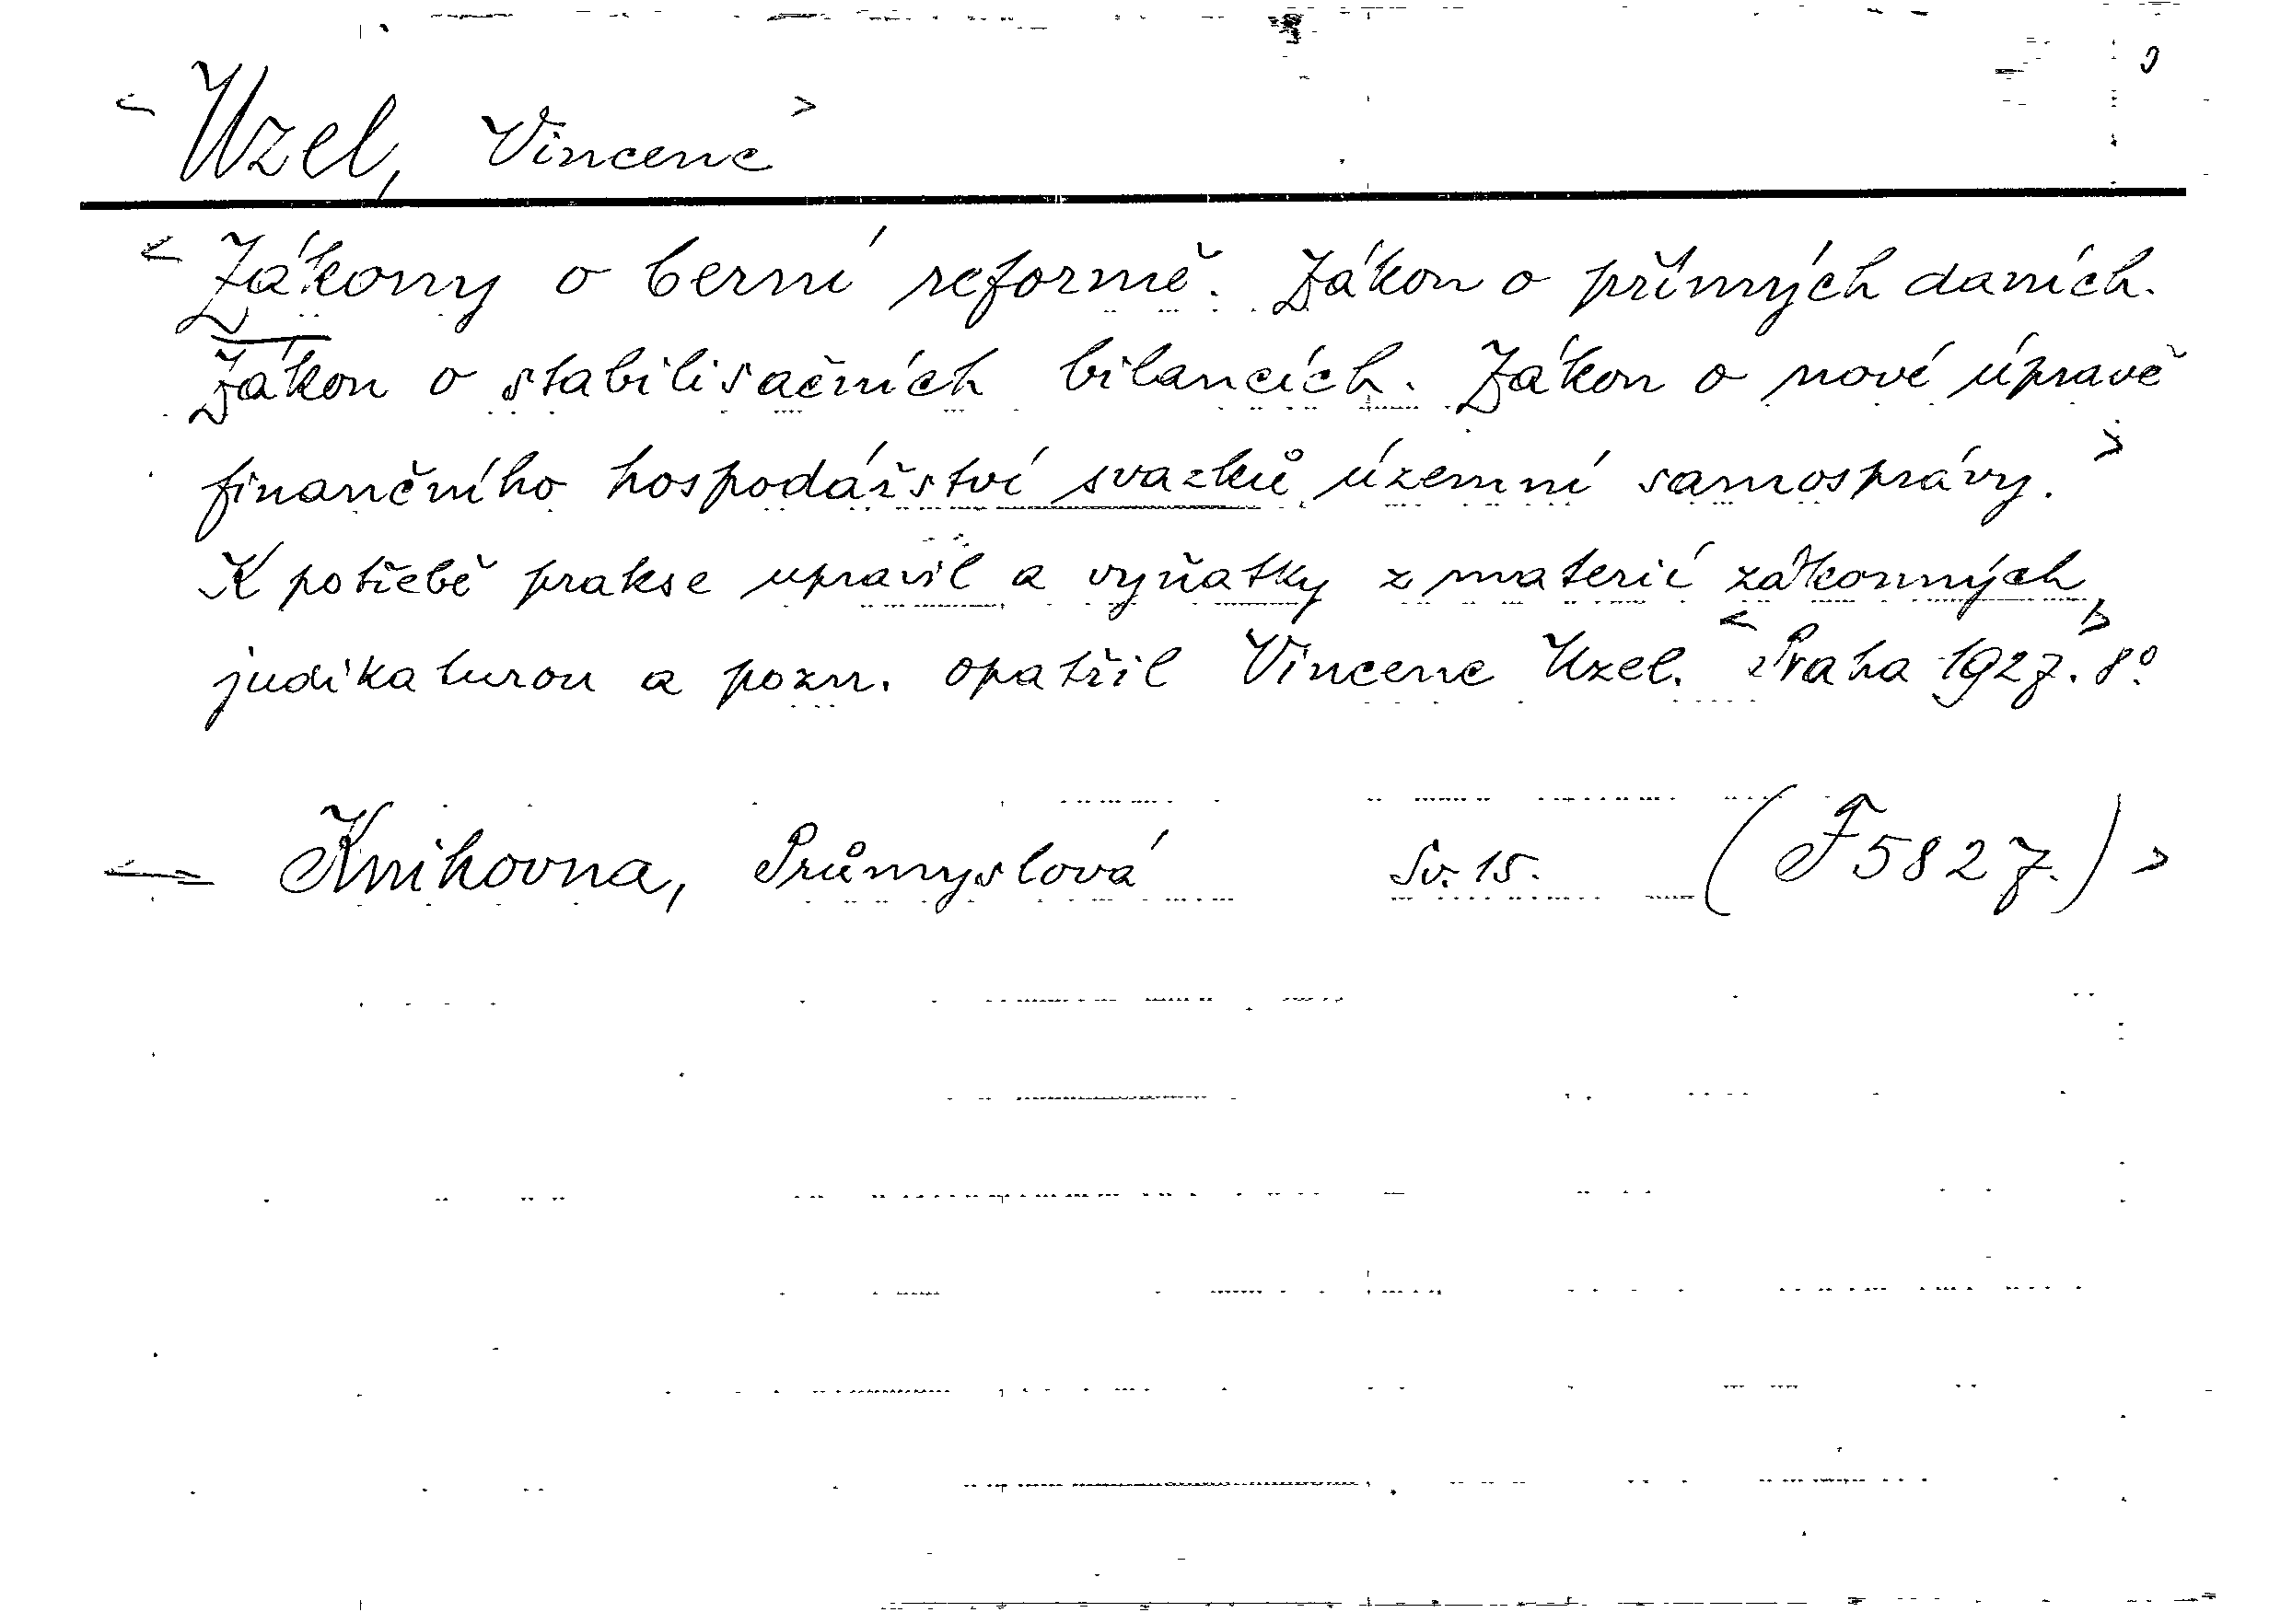 < Uzel, Vincenc >
< Zákony o berní reformě. Zákon o přímých daních.
Zákon o stabilisačních bilancích. Zákon o nové úpravě
finančního hospodářství svazků územní samosprávy. >
K potřebě prakse upravil a vyňatky z materií zákonných,
judikaturou a pozn. opatřil Vincenc Uzel. < Praha 1927. 8° >
<= Knihovna, Průmyslová Sv. 15. (F 5827.) >